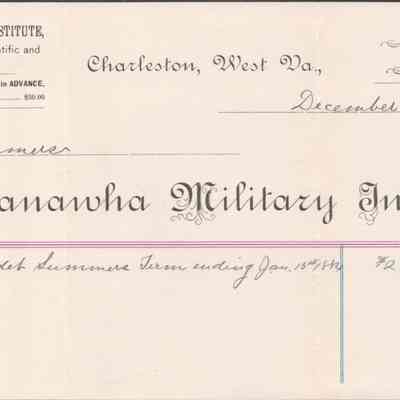 STITUTE,
tific and
in ADVANCE,
$50.00
Charleston, West Va.,
December
mmers
anawha Military In
det Summers Term ending Jan. 15th
$2